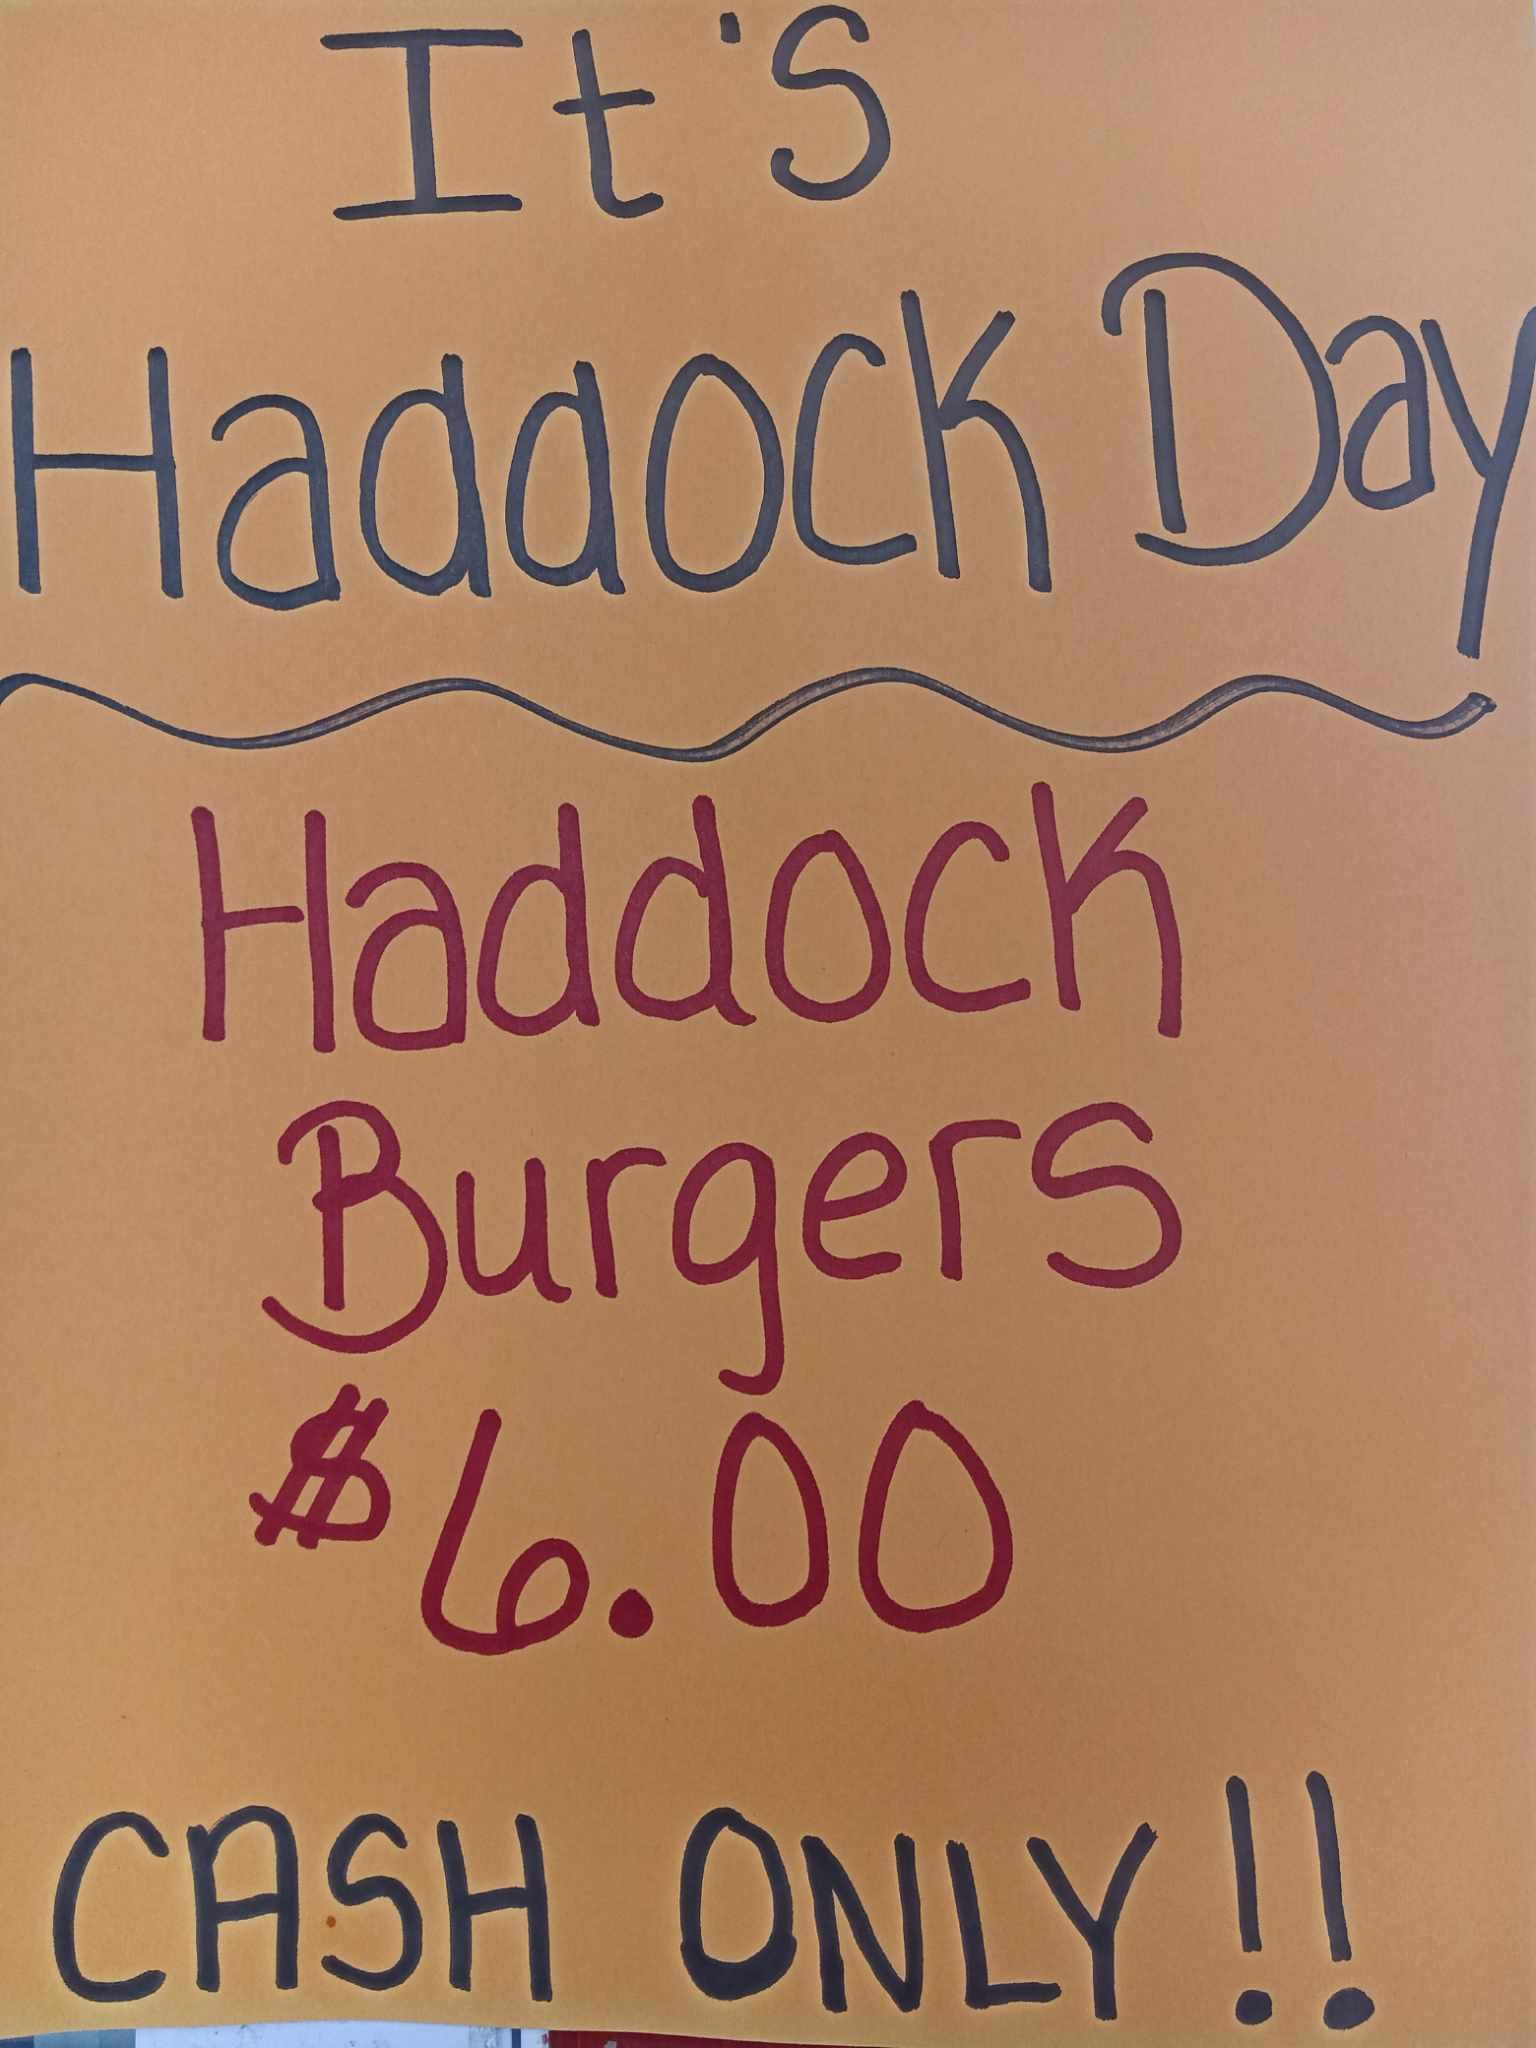 It's
Haddock Day
Haddock
Burgers
$6.00
CASH ONLY!!